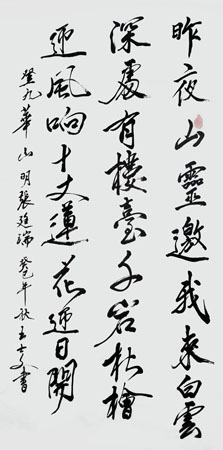 昨夜山靈邀我來白雲
深處有樓臺千岩松檜
迎風响十丈蓮花迎日開
登九華山明張廷瑞癸巳年秋玉士書